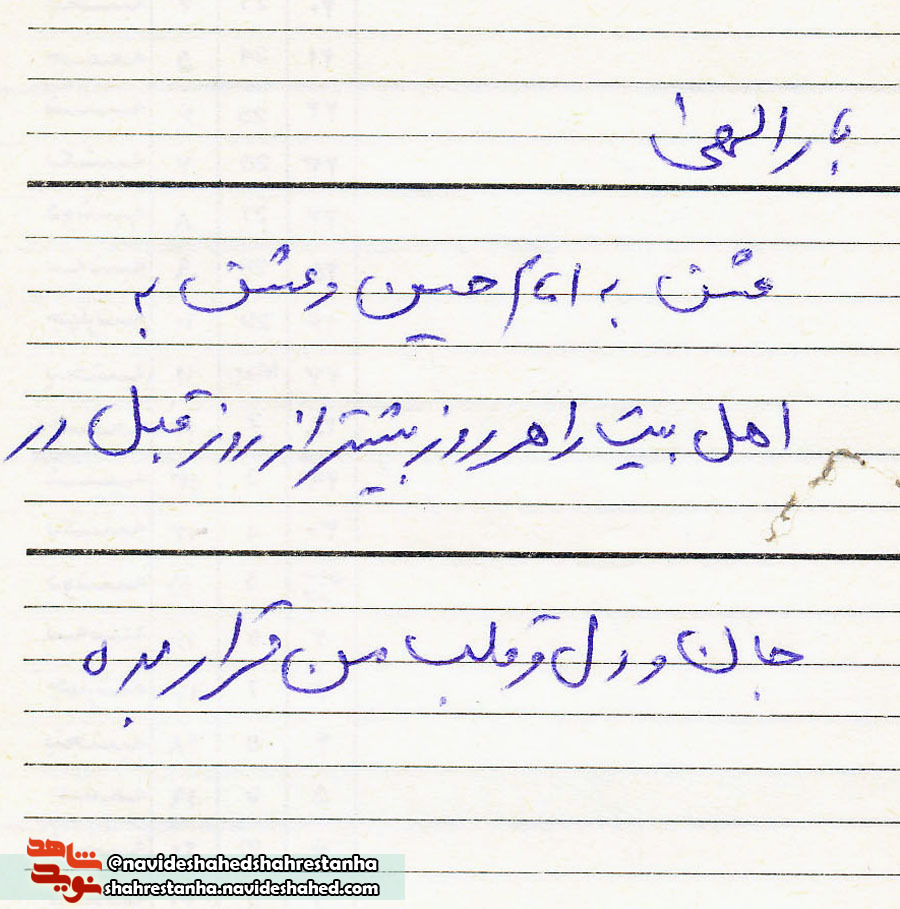 بار الهیٰ
عشق به امام حسین و عشق به
اهل بیت را هر روز بیشتر از روز قبل در
جان و دل و قلب من قرار بده
شاهد
نوید
@navideshahedshahrestanha
shahrestanha.navideshahed.com